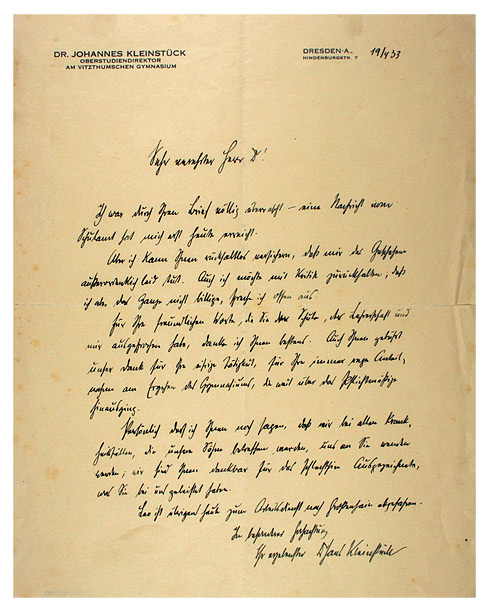 DR. JOHANNES KLEINSTÜCK
OBERSTUDIENDIREKTOR
AM VITZTHUMSCHEN GYMNASIUM
DRESDEN-A., 19/4 33
HINDENBURGSTR. 7
Sehr verehrter Herr D!
Ich war durch Ihren Brief völlig überrascht – eine Nachricht vom
Schulamt hat mich erst heute erreicht.
Aber ich kann Ihnen rückhaltlos versichern, daß mir das Geschehen
außerordentlich leid tut. Auch ich möchte mit Kritik zurückhalten; daß
ich aber das Ganze nicht billige, spreche ich offen aus.
Für Ihre freundlichen Worte, die Sie der Schule, der Lehrerschaft und
mir ausgesprochen habe, danke ich Ihnen bestens. Auch Ihnen gebührt
unser Dank für Ihre eifrige Tätigkeit, für Ihre immer rege Anteil-
nahme am Ergehen des Gymnasiums, die weit über das Pflichtmäßige
hinausging.
Persönlich darf ich Ihnen noch sagen, daß wir bei allen Krank-
heitsfällen, die unsere Söhne betreffen werden, uns an Sie wenden
werden; wir sind Ihnen dankbar für das Ausgezeichnete,
was Sie bei uns geleistet haben.
Leo ist übrigens heute zum Arbeitsdienst nach Großenhain abgefahren.
In besonderer Hochachtung
Ihr ergebenster Johannes Kleinstück